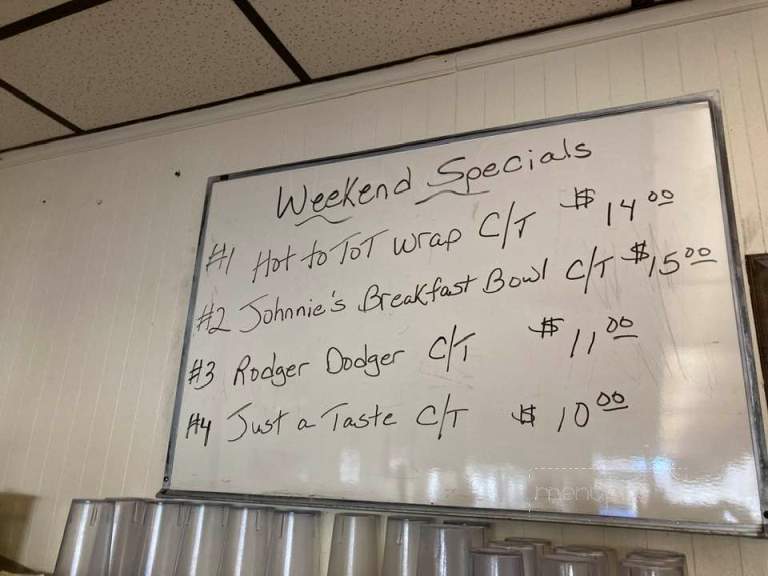 Weekend Specials
#1 Hot to ToT Wrap C/T $14.00
#2 Johnnie's Breakfast Bowl C/T $15.00
#3 Rodger Dodger C/T $11.00
#4 Just a Taste C/T $10.00